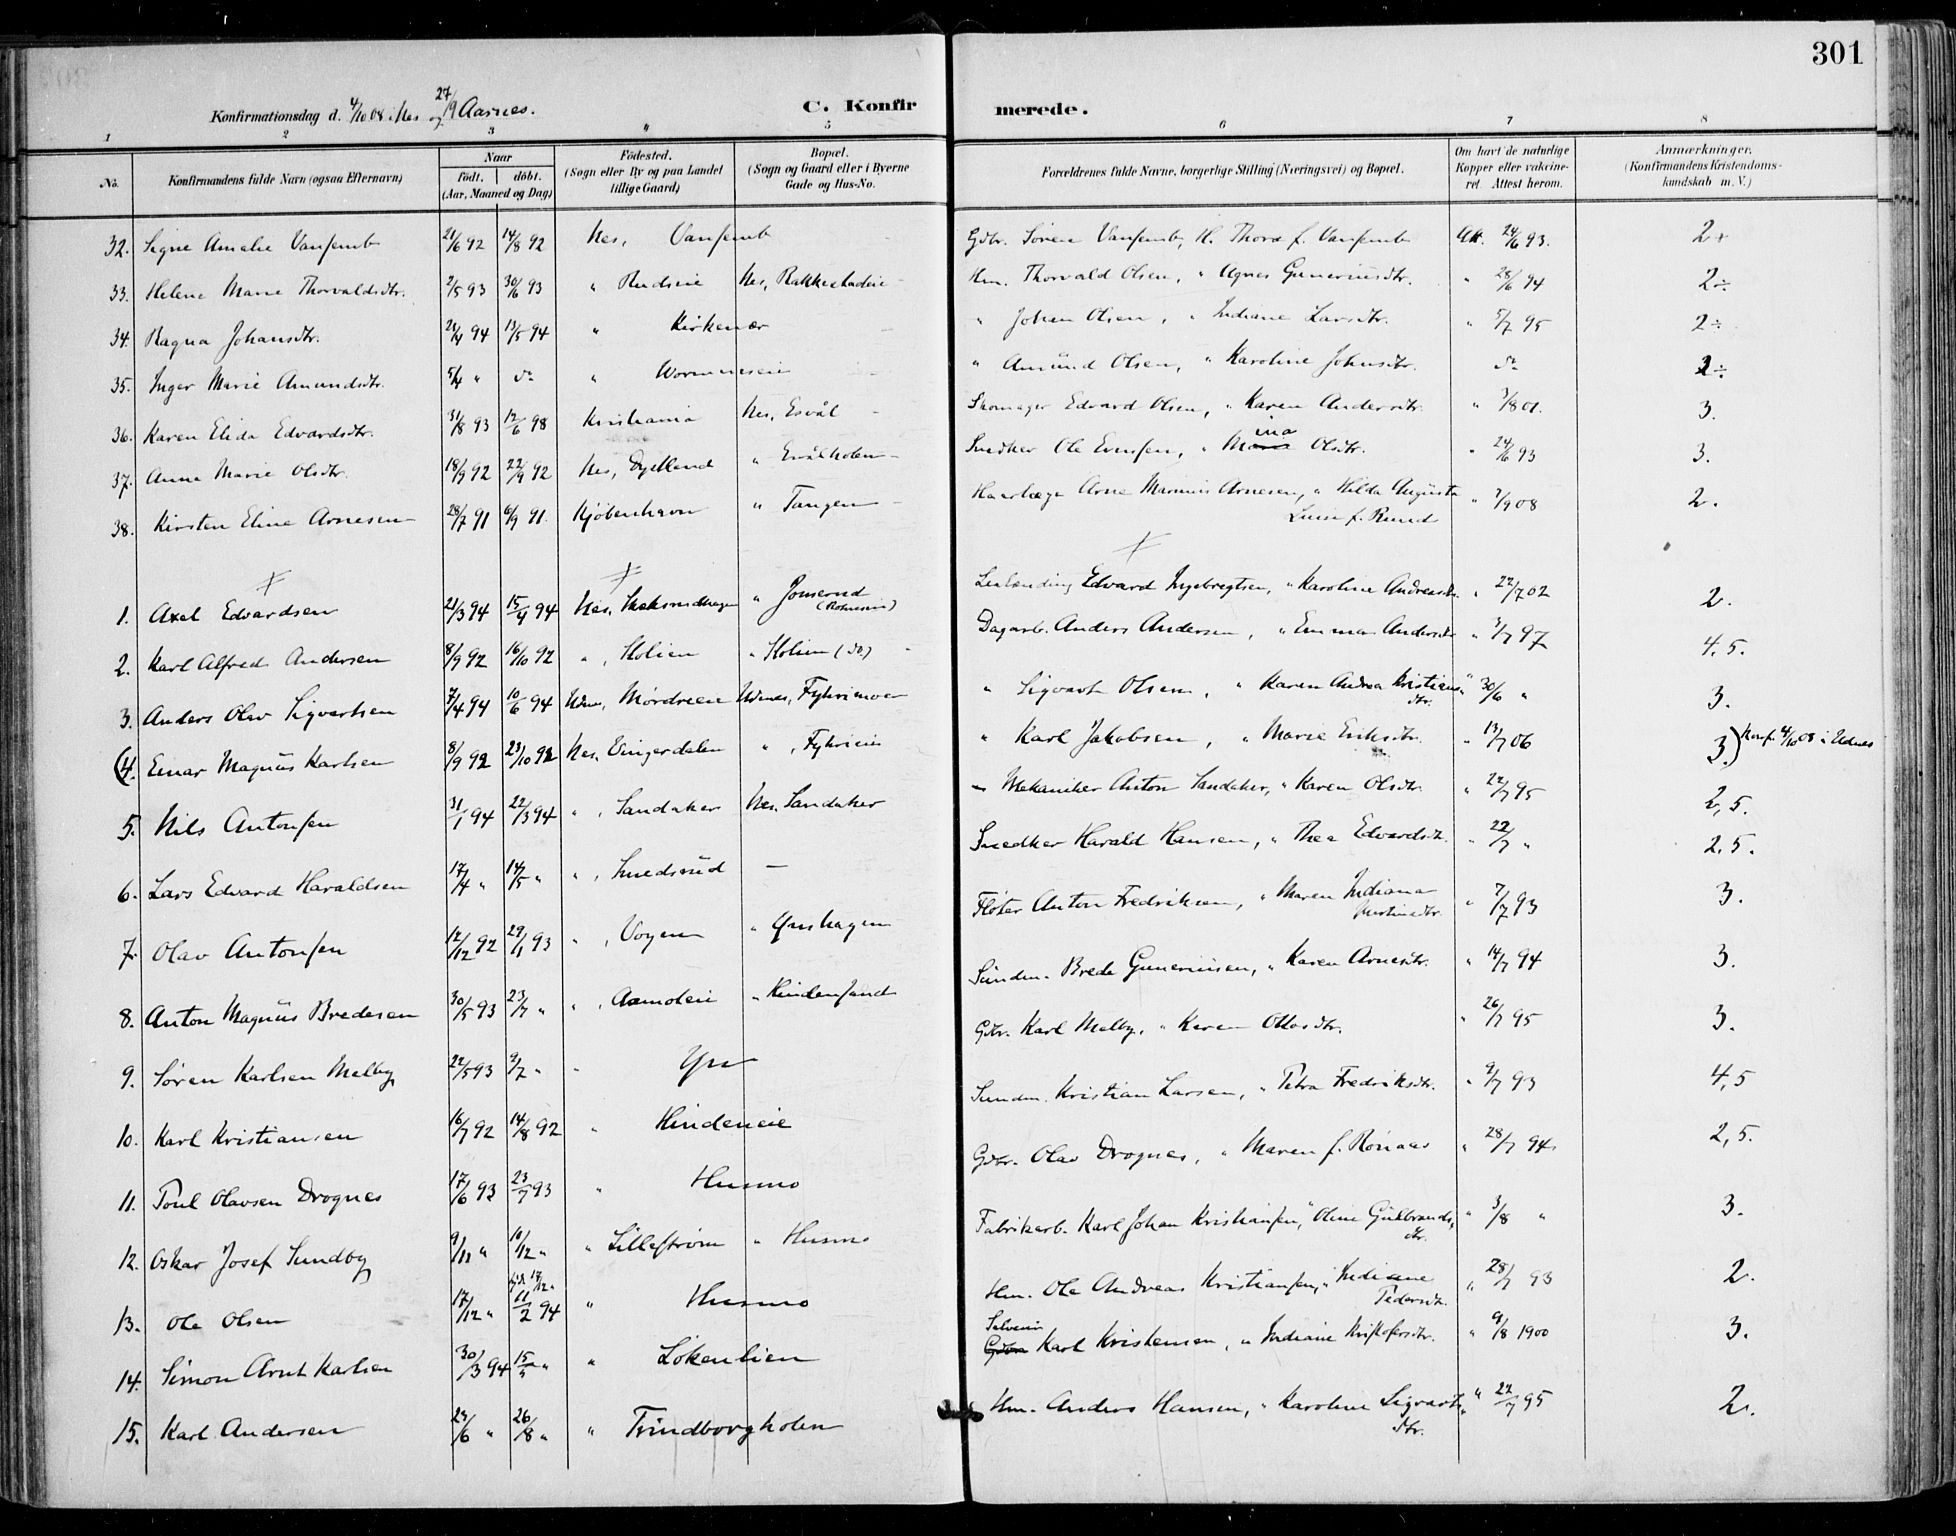 301
Konfirmationsdag d. 4/10 08 i Nes og 27/9 Aarnes. C. Konfir merede.
1 2 3 " 5 6 7 8
No. Konfirmandens fulde Navn (ogsaa Efternavn) Naar født. døbt. (Aar, Maaned og Dag) Födested. (Sogn eller By og paa Landet tillige Gaard) Bopæl. (Sogn og Gaard eller i Byerne Gade og Hus-No. Forældrenes fulde Navne, borgerlige Stilling (Næringsvei) og Bopæl. Om havt de naturlige Kopper eller vaccineret. Attest herom. Anmærkninger. (Konfirmandens Kristendomskundskab m. V.)
32. Signe Amalie Vansemb 21/6 92 14/8 92 Nes, Vansemb Gdbr. Søren Vansemb, H. Thora f. Vansemb Att. 24/6 93. 2+
33. Helene Marie Thorvaldsdtr. 2/5 93 30/6 93 " Rudseie Nes, Rakkestadeie Hm. Thorvald Olsen, " Agnes Guneriusdtr. " 28/6 94 2÷
34. Ragna Johansdtr. 21/4 94 13/5 94 " Kirkenær " Johan Olsen, " Indiane Larsdtr. " 5/7 95 2÷
35. Inger Marie Amundsdtr. 5/4 " do " Wormneseie " Amund Olsen, " Karoline Johnsdtr. do 2÷
36. Karen Elida Edvardsdtr. 31/8 93 12/6 98 Kristiania Nes, Esvål Skomager Edvard Olsen, " Karen Andersdtr. " 3/8 01. 3.
37. Anna Marie Olsdtr. 18/9 92 22/9 92 Nes, Dystland " Evålholen Snedker Ole Evensen, " Mina Olsdtr. " 24/6 93 3.
38. Kirsten Eline Arnesen 28/7 91 6/9 91. Kjöbenhavn " Tangen Arne Marinus Arnesen, " Hilda Augusta Luise f. Rund " 7/9 08 2.
1. Axel Edvardsen 21/3 94 15/4 94 Nes, " Edvard Ingebregtsen, " Karoline Andreasdtr. " 22/7 02 2.
2. Karl Alfred Andersen 8/9 92 16/10 92 ", Holien " Holien (do) Dagarb. Anders Andersen, " Emma Andersdtr " 3/7 97 4,5.
3. Anders Olav Sigvartsen 7/4 94 10/6 94 Udnes, Mørdreeie Udenes, Fyhrimoen " Sigvart Olsen, " Karen Andrea Kristiansdtr. " 30/6 " 3.
(4. Einar Magnus Karlsen 8/9 92 23/10 92 Nes, Eingerdalen ", Fyhrieie " Karl Jakobsen, " Marie Eriksdtr. " 13/7 06 3.) Konf. 4/10 08 i Udnes
5. Nils Antonsen 31/1 94 22/3 94 ", Sandaker Nes, Sandaker Mekaniker Anton Sandaker, " Karen Olsdtr. " 22/7 95 2,5.
6. Lars Edvard Haraldsen 17/4 " 14/5 " ", Smedsrud — Snedker Harald Hansen, " Thea Edvardsdtr. " 22/7 " 2.5.
7. Olav Antonsen 12/12 92 29/1 93 ", Voyen " Fløter Anton Fredriksen, " Maren Indiana " 7/7 93 3.
8. Anton Magnus Bredesen 30/5 93 23/7 " ", Aamoteie " Brede Gunerinsen, " Karen Arnesdtr. " 14/7 94 3.
9. Søren Karlsen Melby 22/5 93 2/7 " " Gdbr. Karl Melby, " Karen Ottosdtr. " 26/7 95 3.
10. Karl Kristiansen 16/7 92 14/8 92 " Hindeneie Kristian Larsen, " Petra Fredriksdtr. " 9/7 93 4,5
11. Poul Olavsen Drognes 17/6 93 23/7 93 " Husmo Gdbr. Olav Drognes, " Maren f. Rönaas " 28/7 94 2,5.
12. Oskar Josef Sundby 9/11 " 10/12 " " Lilleström " Husmo Fabrikarb. Karl Johan Kristiansen, " Oline Gulbrandsdtr. " 3/8 " 3.
13. Ole Olsen 17/12 " 11/2 94 " Husmo Hm. Ole Andreas Kristiansen, " Indiane Pedersdtr. " 28/7 93 2.
14. Simon Arnt Karlsen 30/3 94 15/5 " " Lökenlien Selveier Karl Kristensen, " Indiane Kristofersdtr. " 9/8 1900 3.
15. Karl Andersen 24/6 " 26/8 " " Trindborgholen Hm. Anders Hansen, " Karoline Sigvartsdtr. " 22/7 95 2.